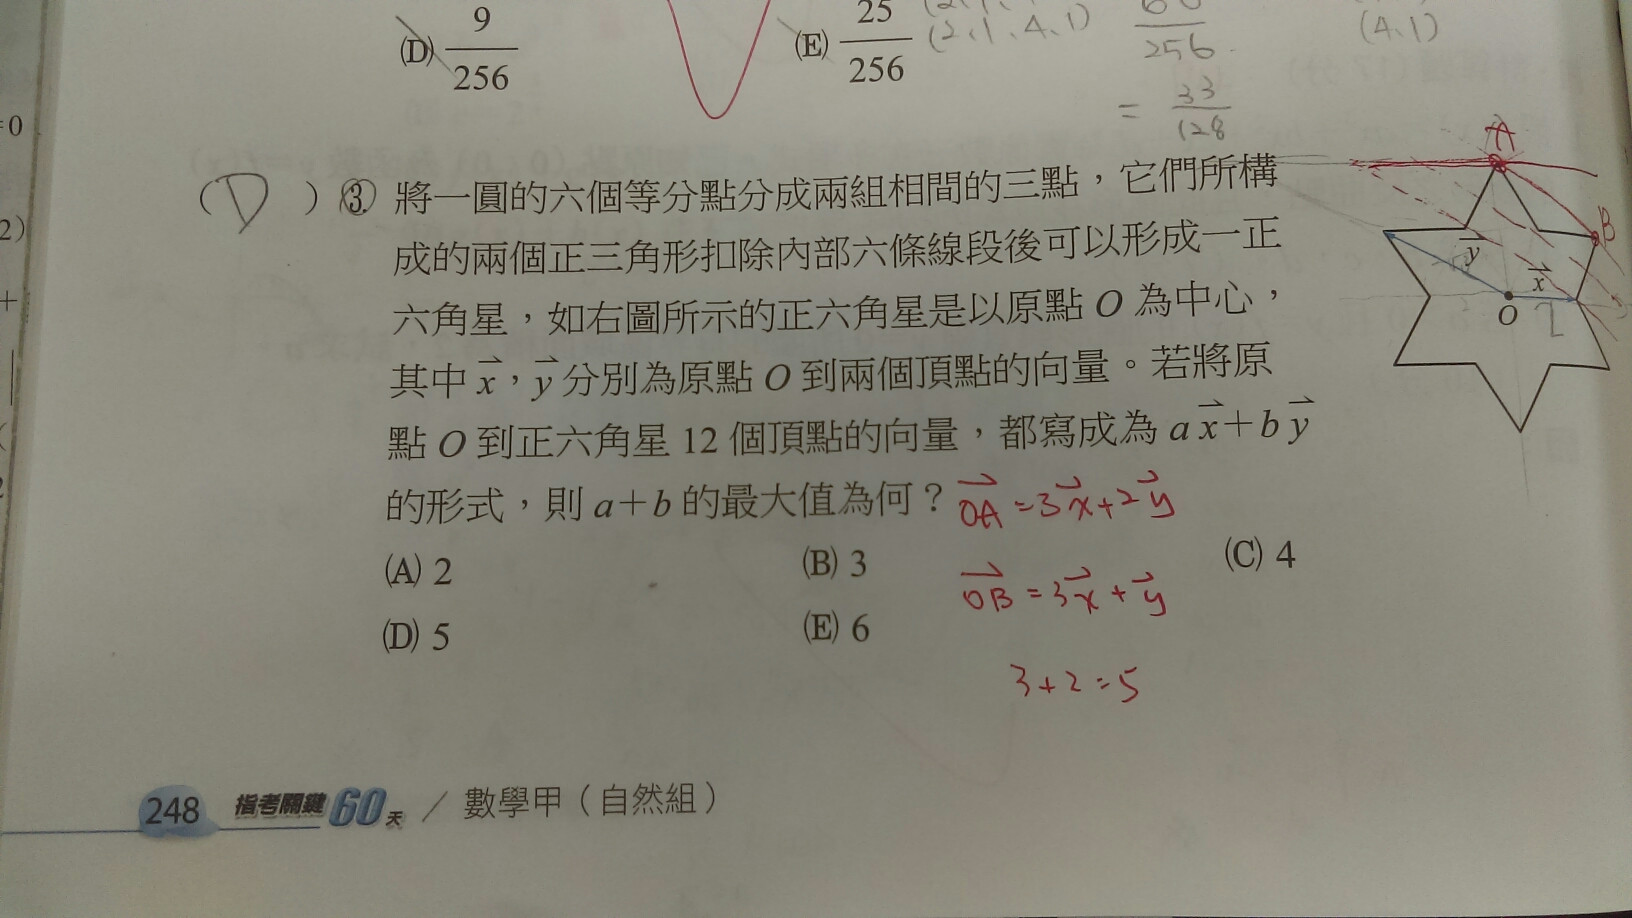 (D) 9/256
(E) 25/256
(2、1、4、1)
256
(4、1)
= 33/128
=0
2)
+
(D) ③. 將一圓的六個等分點分成兩組相間的三點，它們所構
成的兩個正三角形扣除內部六條線段後可以形成一正
六角星，如右圖所示的正六角星是以原點 O 為中心，
其中 x⃗，y⃗ 分別為原點 O 到兩個頂點的向量。若將原
點 O 到正六角星 12 個頂點的向量，都寫成為 a x⃗＋b y⃗
的形式，則 a＋b 的最大值為何？ OA⃗ = 3x⃗ + 2y⃗
(A) 2
(B) 3
(C) 4
OB⃗ = 3x⃗ + y⃗
(D) 5
(E) 6
3+2=5
A
B
y⃗
x⃗
O
248 指考關鍵60天 / 數學甲（自然組）